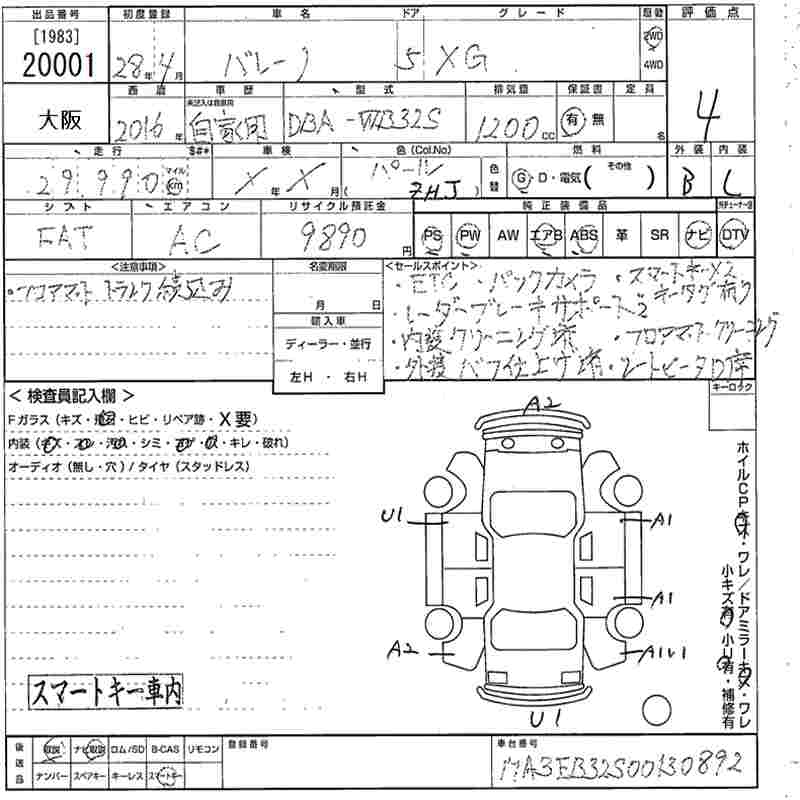 出品番号 初度登録 車名 ドア グレード 駆動 評価点
[1983]
20001 28年4月 バレーノ 5 XG 2WD 4WD 4
西暦 車歴 型式 排気量 保証書 定員
大阪 2016年 未記入は自家用 自家用 DBA-WB32S 1200cc 有・無 名
走行 $#* 車検 色(Col.No) 燃料 外装 内装
29,990 マイル km X年X月 パール ZHJ 色替 G・D・電気(その他) B C
シフト エアコン リサイクル預託金 純正装備品
FAT AC 9890円 PS PW AW エアB ABS 革 SR ナビ DTV
<注意事項> 名変期限 <セールスポイント>
・フロアマット トランク積込み 月 日
・ETC ・バックカメラ ・スマートキー×2 キータグ有り
・レーダーブレーキサポート2
・内装クリーニング済 ・フロアマットクリーニング
・外装バフ仕上ゲ済 ・シートヒーターD席
輸入車
ディーラー・並行
左H・右H
キーロック
<検査員記入欄>
Fガラス(キズ・飛石・ヒビ・リペア跡・X要)
内装(キズ・スレ・汚れ・シミ・コゲ・穴・キレ・破れ)
オーディオ(無し・穴)/タイヤ(スタッドレス)
A2
U1
A1
A1
A2
A1U1
U1
ホイルCPキズ・ワレ/ドアミラーキズ・ワレ
小キズ有・小U有・補修有
スマートキー車内
後送品 取説 ナビ取説 ロム/SD B-CAS リモコン 登録番号 車台番号
ナンバー スペアキー キーレス スマートキー MA3EWB32S00130892